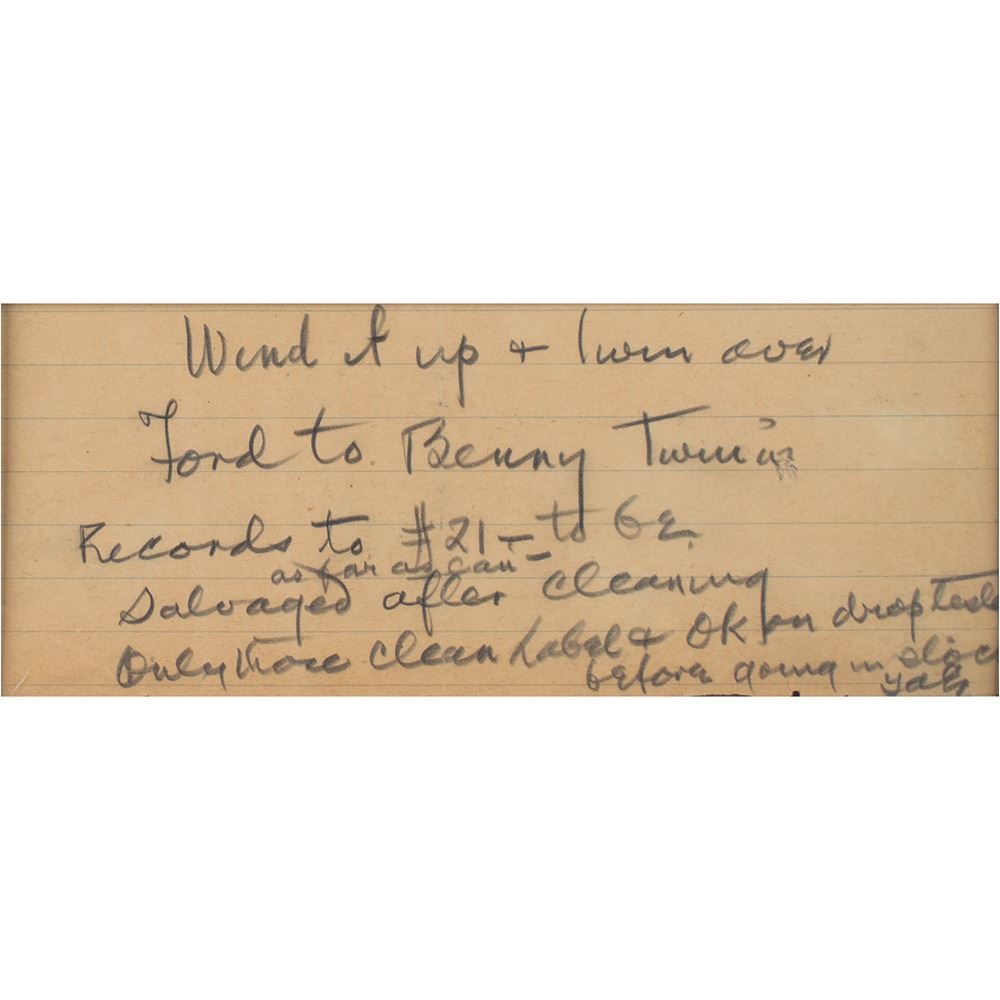 Wind it up + turn over
Ford to Benny Turner
Records to #21 — to be
as far as can
Salvaged after cleaning
Only those clean Label & OK on drop test
before going in